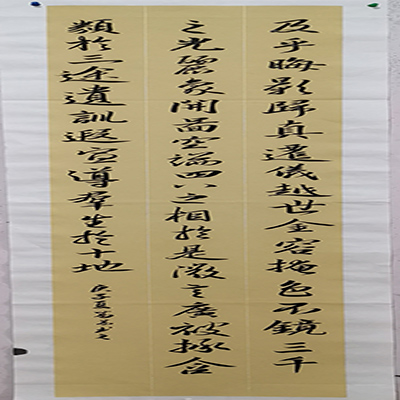 及乎晦影歸真遷儀越世金容掩色不鏡三千
之光麗象開圖空端四八之相於是微言廣被拯含
類於三途遺訓遐宣導群生於十地